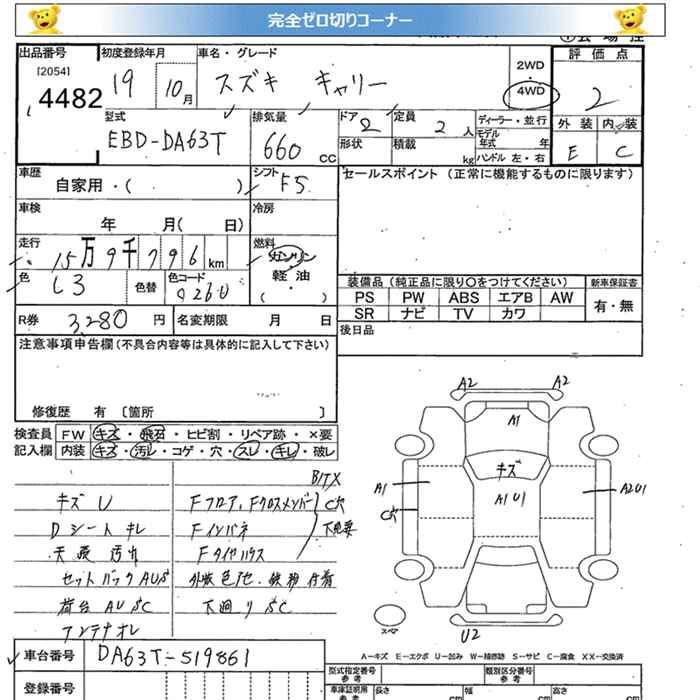 完全ゼロ切りコーナー
出品番号
[2054]
4482
初度登録年月
19 10月
車名・グレード
スズキ キャリー
2WD
・
4WD
評価点
2
外装 内装
E C
型式
EBD-DA63T
排気量
660 cc
ドア 2
形状
定員 2 人
積載 kg
ディーラー・並行
モデル年式 年
ハンドル 左・右
車歴
自家用・( )
シフト F5
セールスポイント(正常に機能するものに限ります)
車検
年 月( 日)
冷房
走行
15万9千796km
燃料
ガソリン
・
軽油
( )
色 し3
色替
色コード
装備品(純正品に限り○をつけてください)
新車保証書
PS PW ABS エアB AW
SR ナビ TV カワ
有・無
R券 3,280 円
名変期限 月 日
後日品
注意事項申告欄(不具合内容等は具体的に記入して下さい)
修復歴 有 〔箇所 〕
検査員
記入欄
FW キズ・飛石・ヒビ割・リペア跡・×要
内装 キズ・汚レ・コゲ・穴・スレ・キレ・破レ
キズ U
Dシート キレ
天張 汚れ
荷台 AU SC
アンテナオレ
Fフロア、Fクロスメンバー C穴
Fインパネ
Fタイヤハウス
下廻り SC
A2 A2
A1
キズ
A1
A1 U1
A2U1
C穴
スペア
U2
A=キズ E=エクボ U=凹み W=補修跡 S=サビ C=腐食 XX=交換済
車台番号 DA63T-519861
登録番号
型式指定番号
参考
類別区分番号
参考
車庫証明用
参考
長さ cm
幅 cm
高さ cm